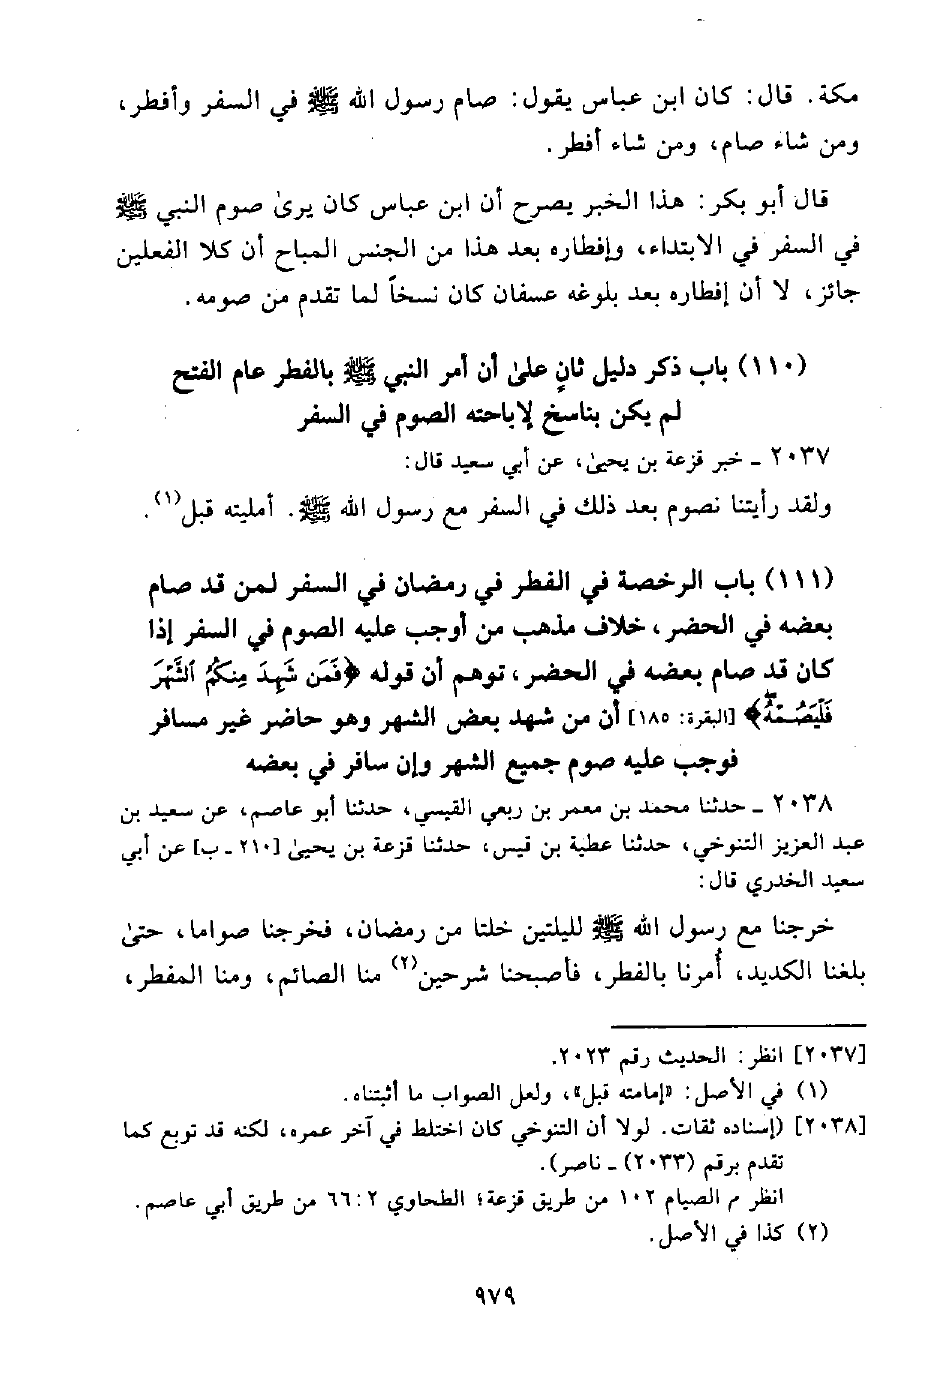 مكة. قال: كان ابن عباس يقول: صام رسول الله ﷺ في السفر وأفطر،
ومن شاء صام، ومن شاء أفطر.
قال أبو بكر: هذا الخبر يصرح أن ابن عباس كان يرىٰ صوم النبي ﷺ
في السفر في الابتداء، وإفطاره بعد هذا من الجنس المباح أن كلا الفعلين
جائز، لا أن إفطاره بعد بلوغه عسفان كان نسخاً لما تقدم من صومه.
(١١٠) باب ذكر دليل ثانٍ علىٰ أن أمر النبي ﷺ بالفطر عام الفتح
لم يكن بناسخ لإباحته الصوم في السفر
٢٠٣٧ ـ خبر قزعة بن يحيىٰ، عن أبي سعيد قال:
ولقد رأيتنا نصوم بعد ذلك في السفر مع رسول الله ﷺ. أمليته قبل(١).
(١١١) باب الرخصة في الفطر في رمضان في السفر لمن قد صام
بعضه في الحضر، خلاف مذهب من أوجب عليه الصوم في السفر إذا
كان قد صام بعضه في الحضر، توهم أن قوله ﴿فَمَن شَهِدَ مِنكُمُ ٱلشَّهْرَ
فَلْيَصُمْهُ ۖ﴾ [البقرة: ١٨٥] أن من شهد بعض الشهر وهو حاضر غير مسافر
فوجب عليه صوم جميع الشهر وإن سافر في بعضه
٢٠٣٨ ـ حدثنا محمد بن معمر بن ربعي القيسي، حدثنا أبو عاصم، عن سعيد بن
عبد العزيز التنوخي، حدثنا عطية بن قيس، حدثنا قزعة بن يحيىٰ [٢١٠ ـ ب] عن أبي
سعيد الخدري قال:
خرجنا مع رسول الله ﷺ لليلتين خلتا من رمضان، فخرجنا صواما، حتىٰ
بلغنا الكديد، أُمرنا بالفطر، فأصبحنا شرحين(٢) منا الصائم، ومنا المفطر،
[٢٠٣٧] انظر: الحديث رقم ٢٠٢٣.
(١) في الأصل: «إمامته قبل»، ولعل الصواب ما أثبتناه.
[٢٠٣٨] (إسناده ثقات. لولا أن التنوخي كان اختلط في آخر عمره، لكنه قد توبع كما
تقدم برقم (٢٠٣٣) ـ ناصر).
انظر م الصيام ١٠٢ من طريق قزعة؛ الطحاوي ٢: ٦٦ من طريق أبي عاصم.
(٢) كذا في الأصل.
٩٧٩